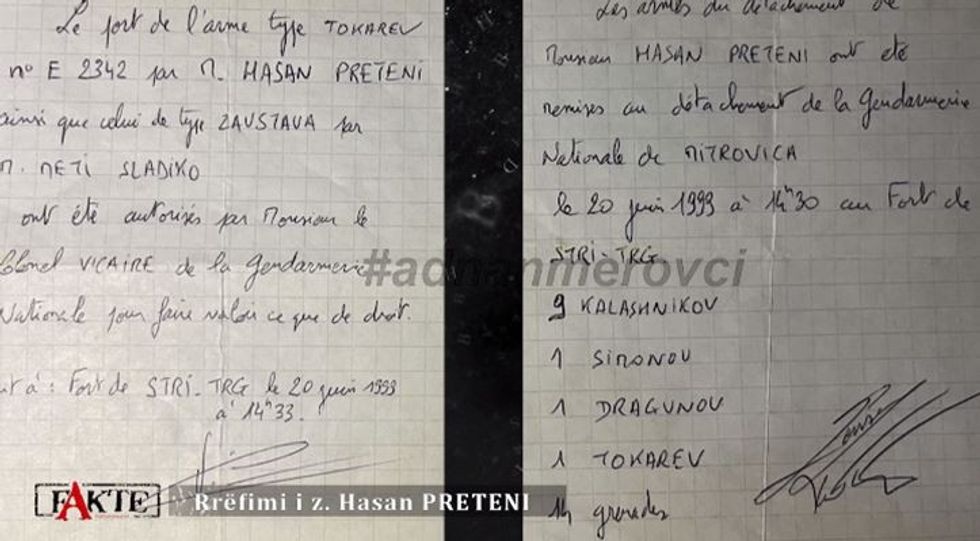 Le port de l'arme type TOKAREV
n° E 2342 par M. HASAN PRETENI
ainsi que celui de type ZAUSTAVA par
M. METI SLADIKO
ont été autorisés par Monsieur le
Colonel VICAIRE de la Gendarmerie
Nationale pour faire valoir ce que de droit.
à : Fort de STRI-TRG le 20 juin 1999
à 14h33.
Les armes du détachement de
Monsieur HASAN PRETENI ont été
remises au détachement de la Gendarmerie
Nationale de MITROVICA
le 20 juin 1999 à 14h30 au Fort de
STRI-TRG.
9 KALASHNIKOV
1 SIMONOV
1 DRAGUNOV
1 TOKAREV
14 grenades
#adnanmerovci
FAKTE
Rrëfimi i z. Hasan PRETENI